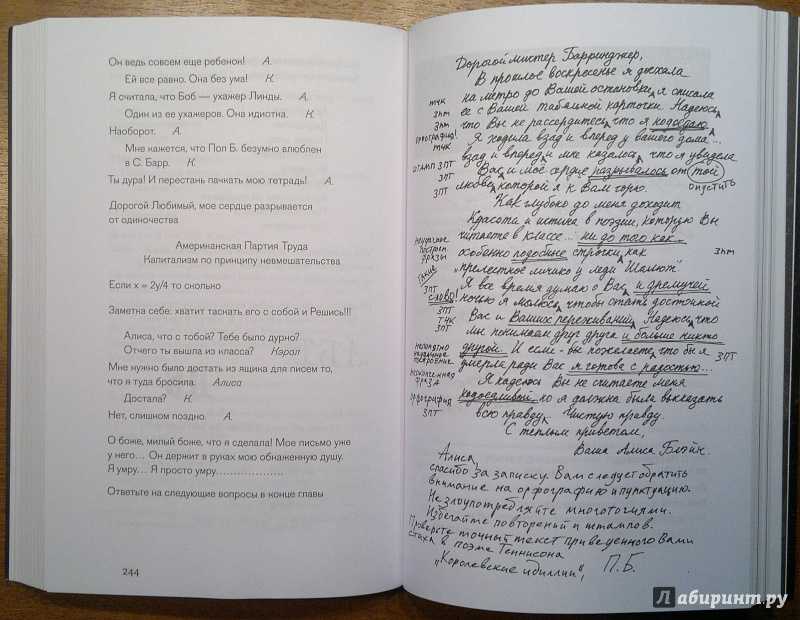 Он ведь совсем еще ребенок! А.
Ей все равно. Она без ума! К.
Я считала, что Боб — ухажер Линды. А.
Один из ее ухажеров. Она идиотка. К.
Наоборот. А.
Мне кажется, что Пол Б. безумно влюблен
в С. Барр. К.
Ты дура! И перестань пачкать мою тетрадь! А.
Дорогой Любимый, мое сердце разрывается
от одиночества
Американская Партия Труда
Капитализм по принципу невмешательства
Если x = 2y/4 то сколько
Заметка себе: хватит таскать его с собой и Решись!!!
Алиса, что с тобой? Тебе было дурно?
Отчего ты вышла из класса? Кэрол
Мне нужно было достать из ящика для писем то,
что я туда бросила. Алиса
Достала? К.
Нет, слишком поздно. А.
О боже, милый боже, что я сделала! Мое письмо уже
у него… Он держит в руках мою обнаженную душу.
Я умру… Я просто умру………………
Ответьте на следующие вопросы в конце главы
244
Дорогой мистер Барринджер,
В прошлое воскресенье я доехала
на метро до Вашей остановки я списала
тчк
ее с Вашей табельной карточки. Надеюсь
зпт
что Вы не рассердитесь что я кодоедаю
зпт
орфография!
Я ходила взад и вперед у вашего дома...
тчк
взад и вперед и мне казалось что я увидела
штамп ЗПТ
Вас и мое сердце разрывалось от той
ЗПТ
любви которой я к Вам горю.
ЗПТ
опустить
Как глубоко до меня доходит
Красота и истина в поэзии, которую Вы
читаете в классе... ни до того как
неудачное построен. фразы
особенно подобние строчки как
зпт
такие
"прелестное личико у леди Шалот"
Я все время думаю о Вас и дремучей
ЗПТ
слово!
ночью я молюсь чтобы стать достойной
ЗПТ
Вас и Ваших переживаний Надеюсь что
ТЧК
ЗПТ
мы понимаем друг друга и больше никто
другой. И если бы пожелаете что бы я
ЗПТ
умерла ради Вас я готова с радостью...
Я надеюсь Вы не считаете меня
незаконченная фраза
кодоедливой но я должна была высказать
орфография
ЗПТ
всю правду Чистую правду.
С теплым приветом,
Ваша Алиса Блейк.
Алиса,
спасибо за записку. Вам следует обратить
внимание на орфографию и пунктуацию.
Не злоупотребляйте многоточиями.
Избегайте повторений и штампов.
Проверьте точный текст приведенного Вами
стиха в поэме Теннисона
"Королевские идиллии",
П.Б.
Лабиринт.ру